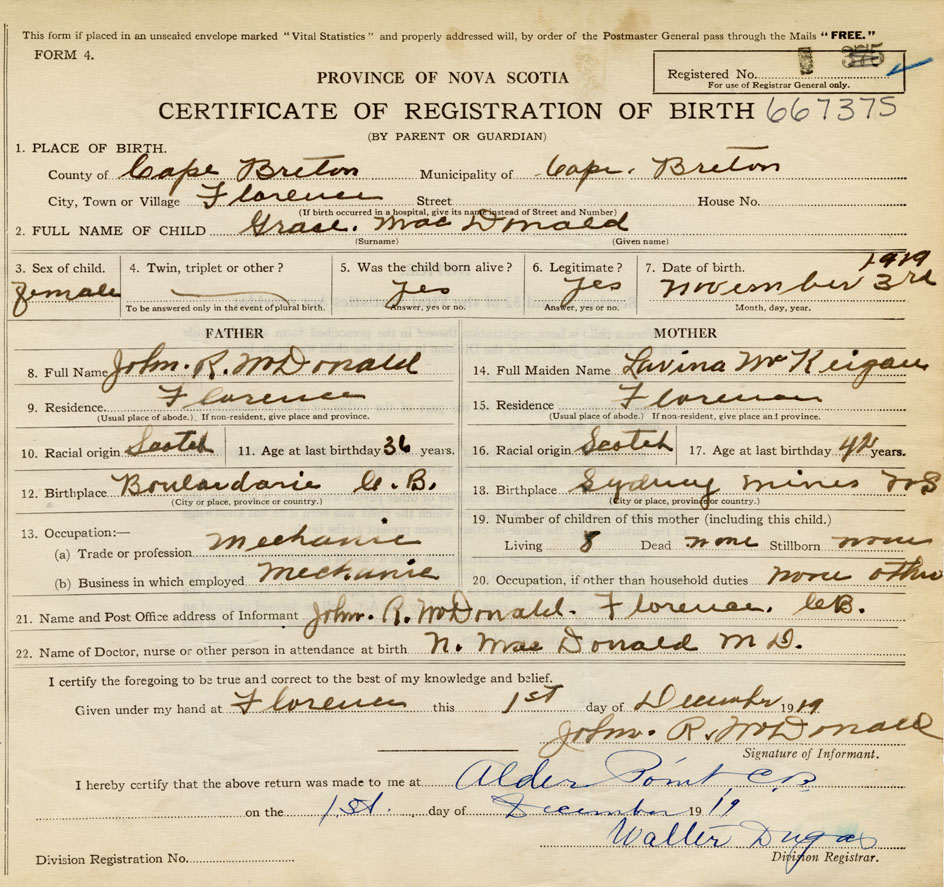 This form if placed in an unsealed envelope marked "Vital Statistics" and properly addressed will, by order of the Postmaster General pass through the Mails "FREE."
FORM 4.
375
Registered No.
For use of Registrar General only.
PROVINCE OF NOVA SCOTIA
CERTIFICATE OF REGISTRATION OF BIRTH 667375
(BY PARENT OR GUARDIAN)
1. PLACE OF BIRTH.
County of Cape Breton Municipality of Cape. Breton
City, Town or Village Florence Street House No.
(If birth occurred in a hospital, give its name instead of Street and Number)
2. FULL NAME OF CHILD Grace. Mac Donald
(Surname) (Given name)
3. Sex of child. 4. Twin, triplet or other? 5. Was the child born alive? 6. Legitimate? 7. Date of birth. 1919
female yes yes November 3rd
To be answered only in the event of plural birth. Answer, yes or no. Answer, yes or no. Month, day, year.
FATHER MOTHER
8. Full Name John. R. McDonald 14. Full Maiden Name Lavina McKeigan
9. Residence. Florence 15. Residence Florence
(Usual place of abode.) If non-resident, give place and province. (Usual place of abode.) If non-resident, give place and province.
10. Racial origin Scotch 11. Age at last birthday 36 years. 16. Racial origin Scotch 17. Age at last birthday 42 years.
12. Birthplace Boulardarie C. B. 18. Birthplace Sydney mines NS
(City or place, province or country.) (City or place, province or country.)
13. Occupation:— 19. Number of children of this mother (including this child.)
(a) Trade or profession Mechanic Living 8 Dead none Stillborn none
(b) Business in which employed Mechanic 20. Occupation, if other than household duties none other
21. Name and Post Office address of Informant John. R. McDonald. Florence. CB.
22. Name of Doctor, nurse or other person in attendance at birth N. MacDonald M D.
I certify the foregoing to be true and correct to the best of my knowledge and belief.
Given under my hand at Florence this 1st day of December 1919
John. R. McDonald
Signature of Informant.
I hereby certify that the above return was made to me at Alder Point, C.B.
on the 1st. day of December 1919
Walter Dugas
Division Registrar.
Division Registration No.